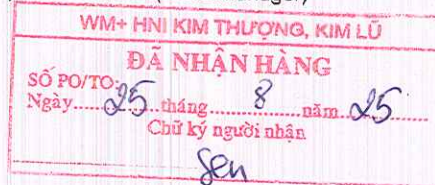 WM+ HNI KIM THƯỢNG, KIM LŨ
ĐÃ NHẬN HÀNG
SỐ PO/TO:
Ngày......25...tháng.........8.........năm..25......
Chữ ký người nhận
Sen